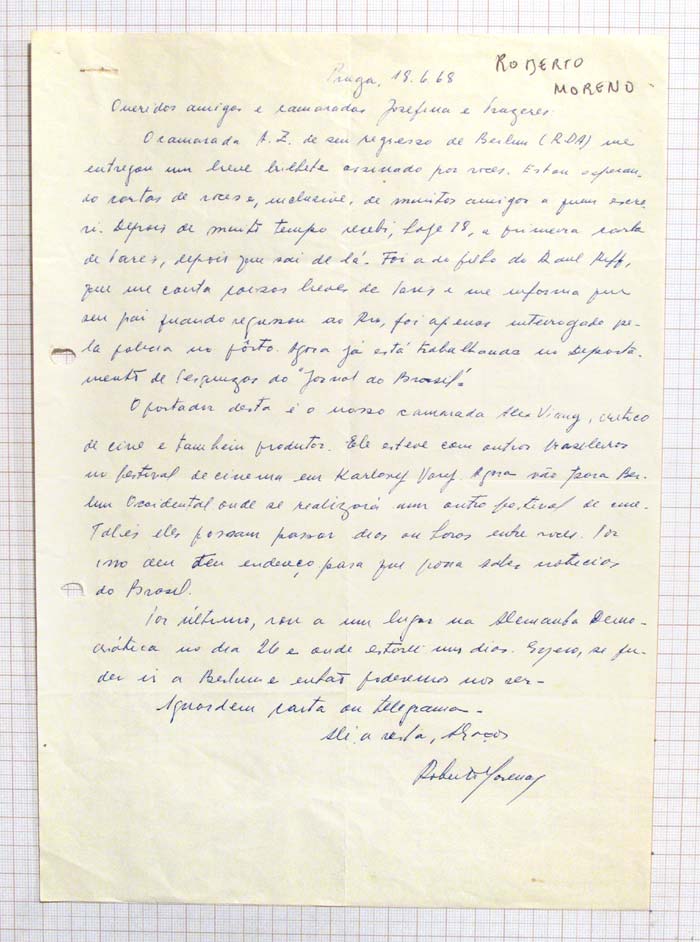 Praga, 18.6.68
ROBERTO
MORENO
Queridos amigos e camaradas Josefina e Prazeres.
O camarada A. Z. de seu regresso de Berlim (RDA) me
entregou um breve bilhete assinado por voces. Estou esperan-
do cartas de voces e, inclusive, de muitos amigos a quem escre-
vi. Depois de muito tempo recebi, hoje 18, a primeira carta
de Paris, depois que sai de lá. Foi a do filho do Raul Riff,
que me conta coisas breves de Paris e me informa que
seu pai quando regressou ao Rio, foi apenas interrogado pe-
la policia no pôrto. Agora já está trabalhando no Departa-
mento de Pesquizas do "Jornal do Brasil".
O portador desta é o nosso camarada Alex Viany, critico
de cine e tambem produtor. Ele esteve com outros brasileiros
no festival de cinema em Karlovy Vary. Agora vão para Ber-
lim Occidental onde se realizará um outro festival de cine.
Talvés eles possam passar dias ou horas entre voces. Por
isso dou seu endereço para que possa saber noticias
do Brasil.
Por último, vou a um lugar na Alemanha Demo-
crática no dia 26 e onde estarei uns dias. Espero, se pu-
der ir a Berlim e então poderemos nos ver-
Aguardem carta ou telegrama-
Até a vista, Abraços
Roberto Morena